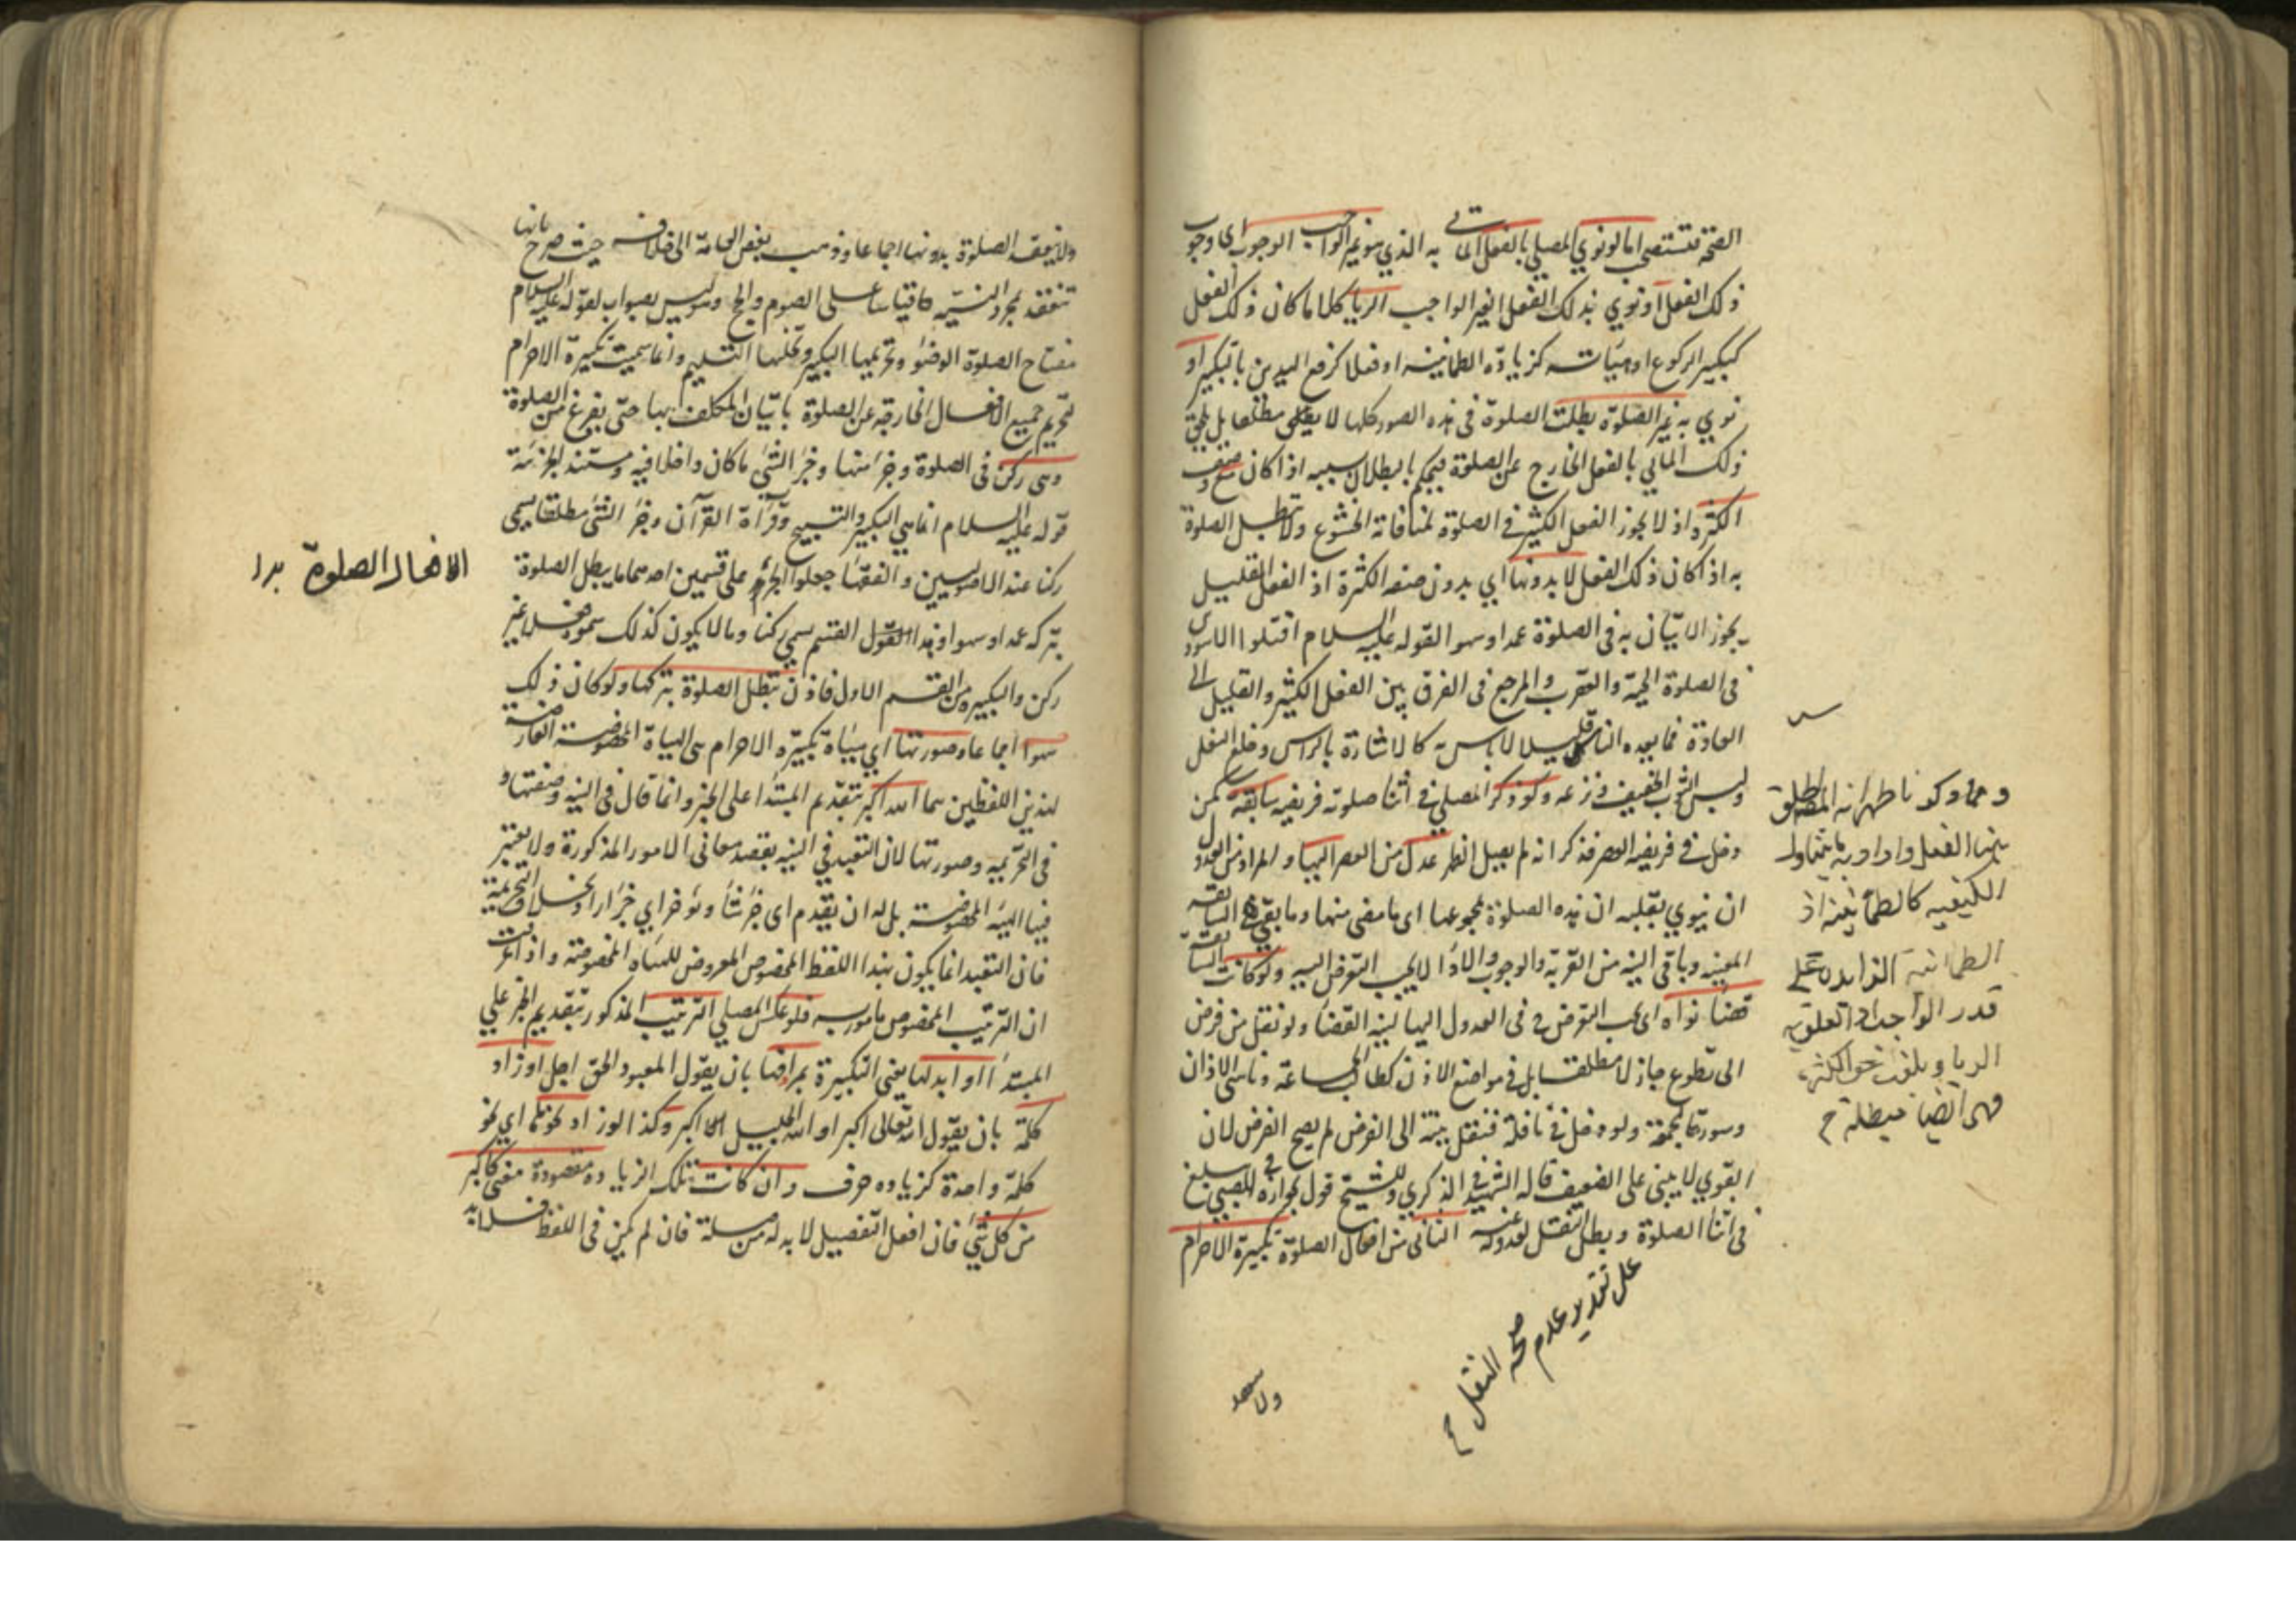 الصحة فتستصحب اما لو نوي المصلي بالفعل الماتي به الذي هو غير الواجب الوجوب اي وجوب
ذلك الفعل او نوي بذلك الفعل الغير الواجب الريا كلاما كان ذلك الفعل
كتكبير الركوع او هيات كزيادة الطمانينة او فعلا كرفع اليدين بالتكبير او
نوي به غير الصلوة بطلت الصلوة في هذه الصور كلها لا مطلقا بل يلحق
ذلك الماتي بالفعل الخارج عن الصلوة فيحكم بالبطلان بسببه اذا كان مع وصف
الكثرة اذ لا يجوز الفعل الكثير في الصلوة لمنافاته الخشوع ولا تبطل الصلوة
به اذا كان ذلك الفعل لا بدونها اي بدون صفه الكثرة اذ الفعل القليل
يجوز الاتيان به في الصلوة عمدا وسهوا لقوله عليه السلام اقتلوا الاسودين
في الصلوة الحية والعقرب والمرجع في الفرق بين الفعل الكثير والقليل الي
العادة فما يعده الناس قليلا لا باس به كالاشارة بالراس وخلع النعل
ولبس الثوب الخفيف ونزعه ولو ذكر المصلي في اثنا صلوته فريضه سابقة كمن
دخل في فريضه العصر فذكر انه لم يصل الظهر عدل من العصر اليها والمراد من العدول
ان ينوي بقلبه ان هذه الصلوة مجموعها اي ما مضي منها وما بقي هي السابقة
المعينه وباقي النية من القربة والوجوب والادا لا يجب التعرض اليه ولو كانت السابقة
قضا نواه اي يجب التعرض في العدول اليها لنية القضا ولو نقل من فرض
الى تطوع جاز لا مطلقا بل في مواضع الاذن كطالب الجماعة وناسي الاذان
وسورة الجمعة ولو دخل في نافلة فنقل نيته الى الفرض لم يصح الفرض لان
القوي لا يبني على الضعيف قاله الشهيد في الذكري وللشيخ قول بجوازه في الصبي يبلغ
في اثنا الصلوة وبطل النفل لعدوله عنه الثاني من افعال الصلوة تكبيرة الاحرام
على تقدير عدم صحة النقل ح
ومما ذكرنا ظهر انه اطلق
هنا الفعل واراد به ما يتناول
الكيفيه كالطمانينة اذ
الطمانينة الزايدة على
قدر الواجب اذا تعلق به
الريا وبلغت حد الكثرة
فهي ايضا مبطلة ح
ولا تنعقد
ولا تنعقد الصلوة بدونها اجماعا وذهب بعض العامة الى خلافه حيث صرح بانها
تنعقد بمجرد النية قياسا على الصوم والحج وليس بصواب لقوله عليه السلام
مفتاح الصلوة الوضوء وتحريمها التكبير وتحليلها التسليم وانما سميت تكبيرة الاحرام
لتحريم جميع الافعال الخارجة عن الصلوة باتيان المكلف بها حتى يفرغ من الصلوة
وهي ركن في الصلوة وجزء منها وجزء الشئ ما كان داخلا فيه ومستند الجزئية
قوله عليه السلام انما هي التكبير والتسبيح وقرآة القرآن وجزء الشئ مطلقا يسمي
ركنا عند الاصوليين والفقها جعلوا الجزء على قسمين احدهما ما يبطل الصلوة
بتركه عمدا وسهوا وهذا القسم يسمي ركنا وما لا يكون كذلك سموه فعلا غير
ركن والتكبيرة من القسم الاول فاذن تبطل الصلوة بتركها ولو كان ذلك
سهوا اجماعا وصورتها اي هيئة تكبيرة الاحرام هي الهيئة المخصوصة العارضة
لهذين اللفظين هما الله اكبر بتقديم المبتدا على الخبر وانما قال في النية وصفتها و
في التحريمه وصورتها لان التعبد في النيه بقصد معاني الامور المذكورة ولا يعتبر
فيها الهيئة المخصوصة بل له ان يقدم اي جزء شا ويؤخر اي جزء اراد بخلاف التحريمة
فان التعبد انما يكون بهذا اللفظ المخصوص المعروض للهيئة المخصوصة واذا عرفت
ان الترتيب المخصوص مامور به فلو عكس المصلي الترتيب المذكور بتقديم الخبر علي
المبتدا او ابدلها يعني التكبيرة بمرادفها بان يقول المعبود الحق اجل او زاد
كلمة بان يقول الله تعالى اكبر او الله الجليل اكبر وكذا لو زاد نحوها اي نحو
كلمة واحدة كزيادة حرف وان كانت تلك الزيادة مقصودة معني كاكبر
من كل شئ فان افعل التفضيل لا بد له من صلة فان لم يكن في اللفظ فلا بد
الافعال الصلوة